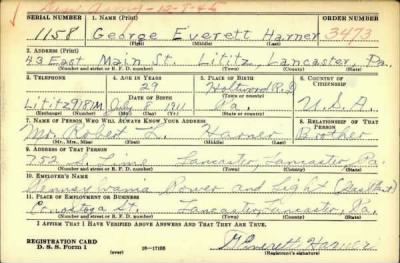 Disc Army - 12-8-45
SERIAL NUMBER 1. NAME (Print) ORDER NUMBER
1158 George Everett Harner 3473
(First) (Middle) (Last)
2. ADDRESS (Print)
43 East Main St. Lititz, Lancaster, Pa.
(Number and street or R. F. D. number) (Town) (County) (State)
3. TELEPHONE 4. AGE IN YEARS 5. PLACE OF BIRTH 6. COUNTRY OF CITIZENSHIP
29 Holtwood R.D.
DATE OF BIRTH (Town or county)
Lititz 9181M July 8 1911 Pa. U.S.A.
(Exchange) (Number) (Mo.) (Day) (Yr.) (State or country)
7. NAME OF PERSON WHO WILL ALWAYS KNOW YOUR ADDRESS 8. RELATIONSHIP OF THAT PERSON
Mr. Robert L. Harner Brother
(Mr., Mrs., Miss) (First) (Middle) (Last)
9. ADDRESS OF THAT PERSON
752 S. Lime Lancaster, Lancaster, Pa.
(Number and street or R. F. D. number) (Town) (County) (State)
10. EMPLOYER'S NAME
Pennsylvania Power and Light
11. PLACE OF EMPLOYMENT OR BUSINESS
Conestoga St. Lancaster, Lancaster, Pa.
(Number and street or R. F. D. number) (Town) (County) (State)
I AFFIRM THAT I HAVE VERIFIED ABOVE ANSWERS AND THAT THEY ARE TRUE.
REGISTRATION CARD
D. S. S. Form 1 (over) 16-17105 G Everett Harner
(Registrant's signature)